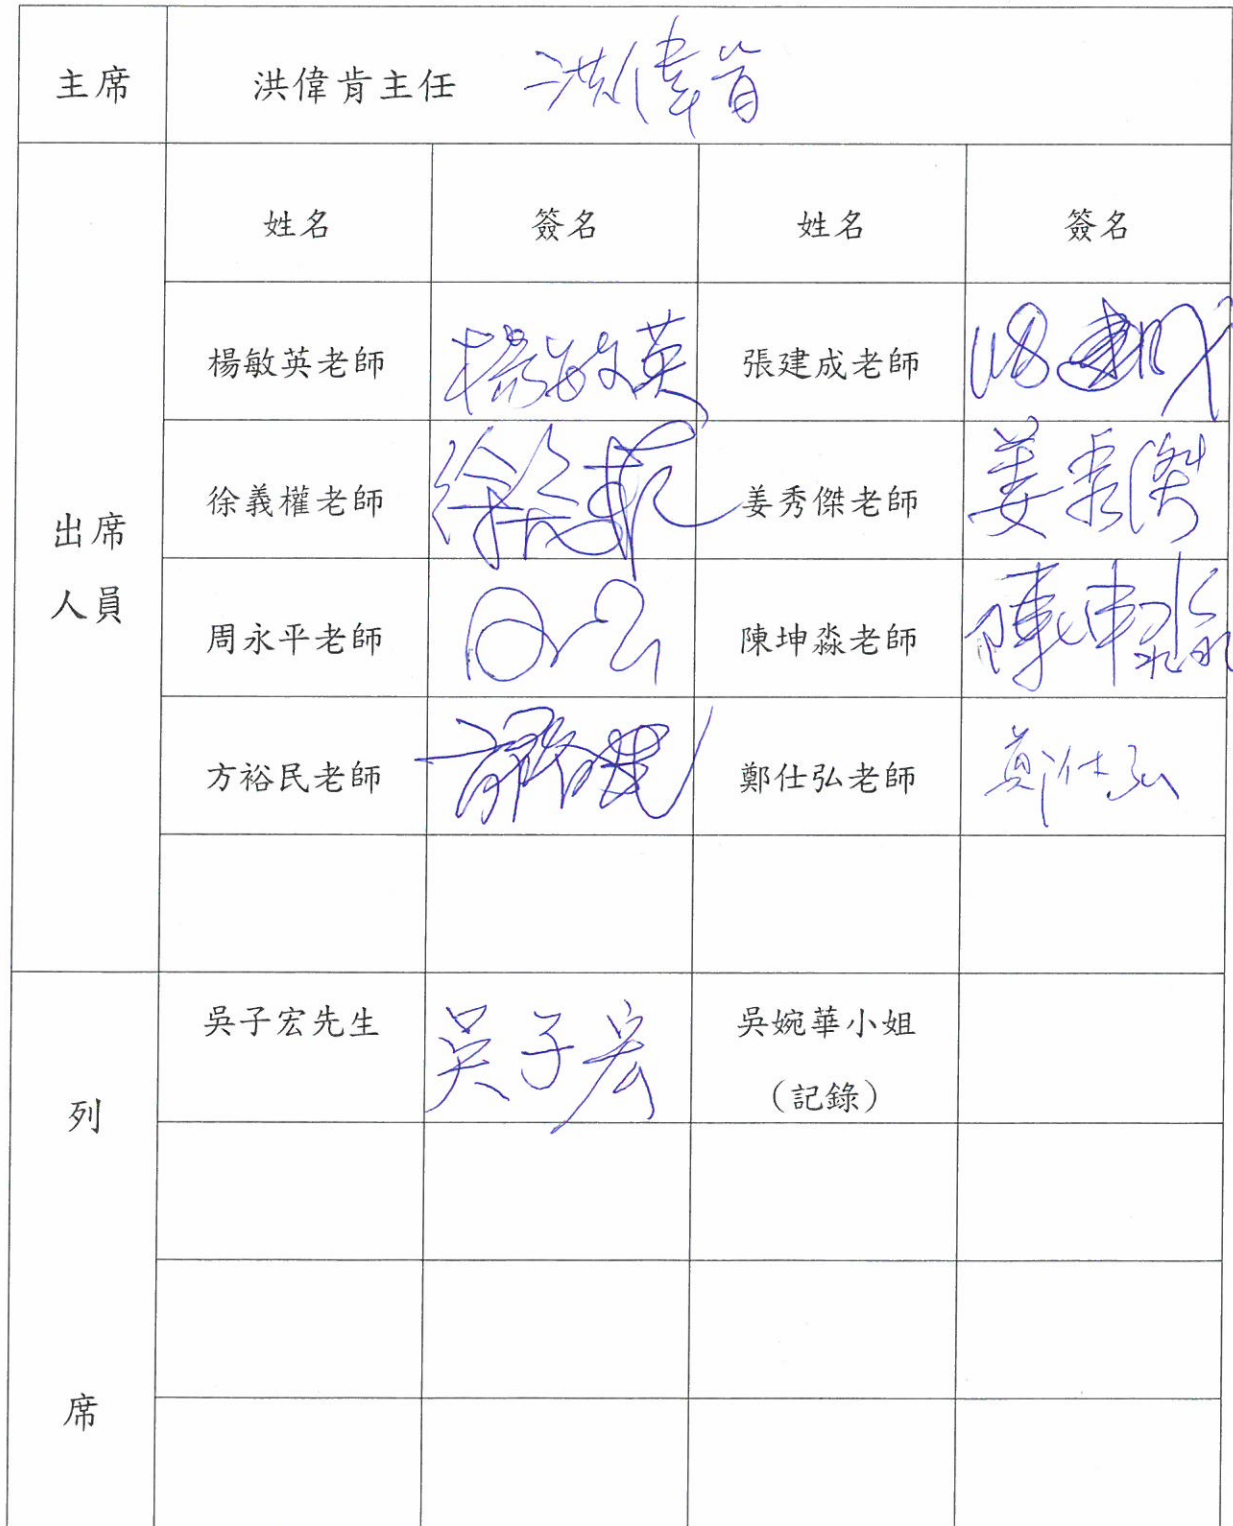 主席 洪偉肯主任 洪偉肯
姓名 簽名 姓名 簽名
楊敏英老師 楊敏英 張建成老師
出席人員
徐義權老師 姜秀傑老師 姜秀傑
周永平老師 陳坤淼老師 陳坤淼
方裕民老師 鄭仕弘老師 鄭仕弘
吳子宏先生 吳子宏 吳婉華小姐
（記錄）
列
席